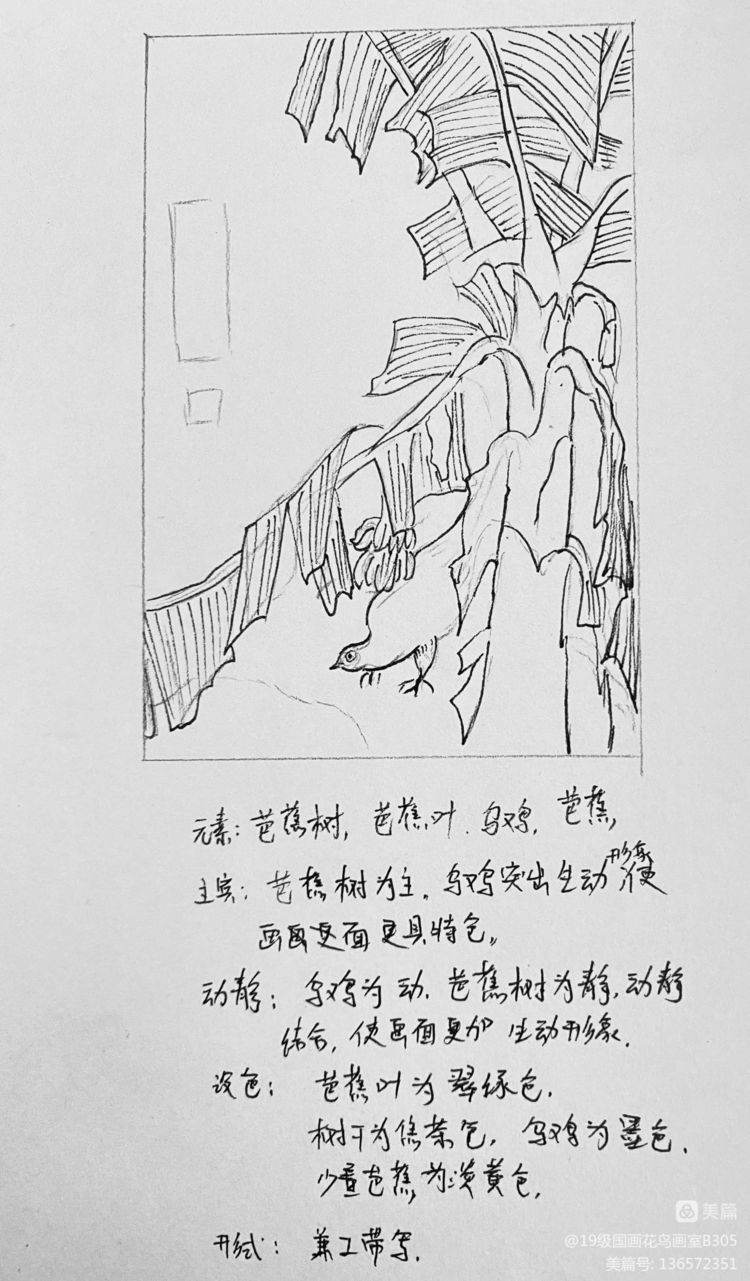 元素：芭蕉树，芭蕉叶．乌鸡，芭蕉，
主宾：芭蕉树为主．乌鸡突出生动形象使
画面更具特色。
动静：乌鸡为动．芭蕉树为静，动静
结合，使画面更加生动形象．
设色：芭蕉叶为翠绿色．
树干为焦茶色，乌鸡为墨色．
少量芭蕉为淡黄色，
形式：兼工带写．
美篇
@19级国画花鸟画室B305
美篇号: 136572351